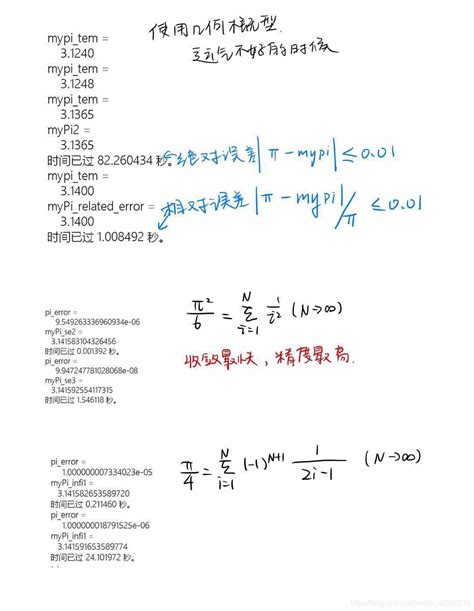 使用几何概型.
运气不好的时候
mypi_tem =
3.1240
mypi_tem =
3.1248
mypi_tem =
3.1365
myPi2 =
3.1365
时间已过 82.260434 秒。
绝对误差 |π-mypi| ≤0.01
mypi_tem =
3.1400
myPi_related_error =
3.1400
相对误差 |π-mypi|/π ≤0.01
时间已过 1.008492 秒。
pi_error =
9.549263336960934e-06
myPi_se2 =
3.141583104326456
时间已过 0.001392 秒。
pi_error =
9.947247781028068e-08
myPi_se3 =
3.141592554117315
时间已过 1.546118 秒。
π²/6 = Σ_{i=1}^{N} 1/i² (N→∞)
收敛最快, 精度最高.
pi_error =
1.000000007334023e-05
myPi_infi1 =
3.141582653589720
时间已过 0.211460 秒。
pi_error =
1.000000018791525e-06
myPi_infi1 =
3.141591653589774
时间已过 24.101972 秒。
π/4 = Σ_{i=1}^{N} (-1)^{N+1} 1/(2i-1) (N→∞)